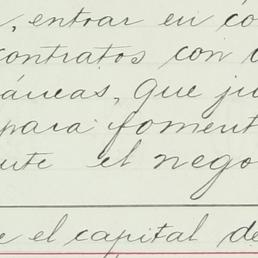 , entrar en có
contratos con
áneas, que ju
para foment
nte el nego
e el capital de